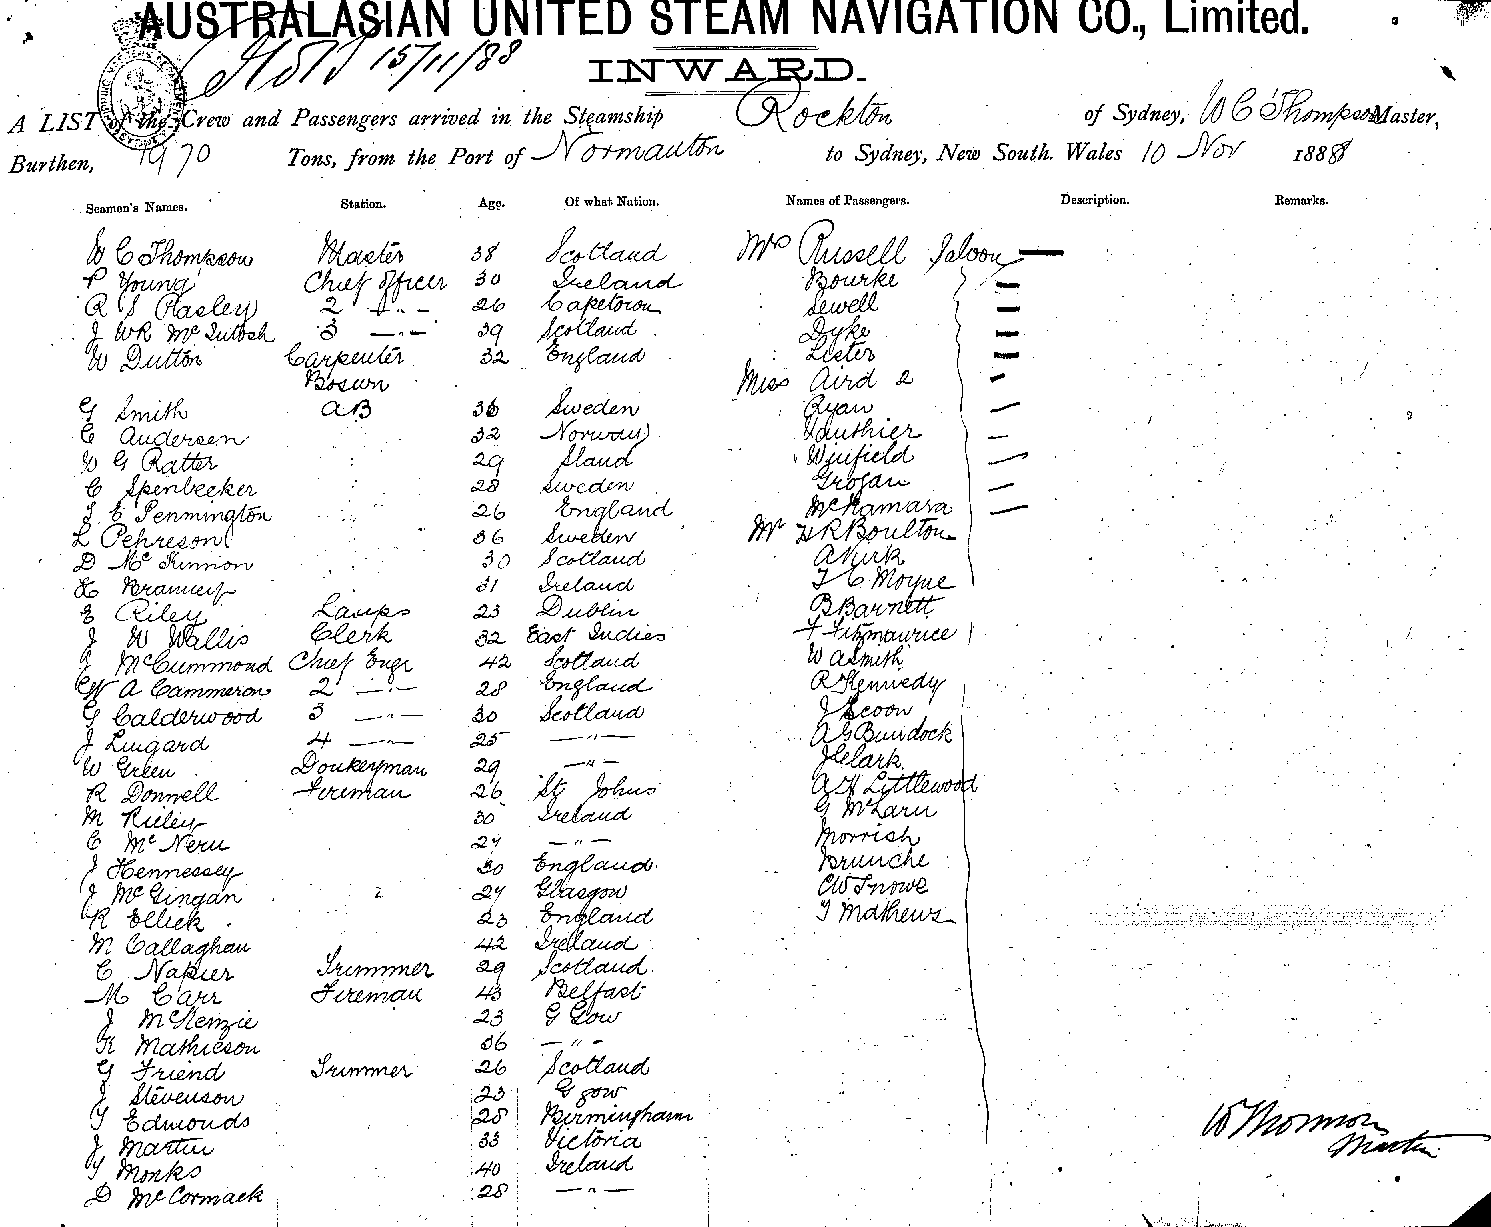 AUSTRALASIAN UNITED STEAM NAVIGATION CO., Limited.
15/11/88
INWARD.
A LIST of the Crew and Passengers arrived in the Steamship Rockton of Sydney, W C Thompson Master,
Burthen, 1970 Tons, from the Port of Normanton to Sydney, New South Wales 10 Nov 1888
Seamen's Names. Station. Age. Of what Nation. Names of Passengers. Description. Remarks.
W C Thompson Master 38 Scotland Mrs Russell Saloon —
P Young Chief Officer 30 Ireland Bourke —
R S Pasley 2 — " — 26 Capetown Sewell —
J WR McIntosh 3 — " — 39 Scotland Dyke —
W Dutton Carpenter 32 England Lister —
Bosun Miss Aird 2 —
G Smith AB 36 Sweden Ryan —
C Andersen 32 Norway Gauthier —
W G Ratter 29 Winfield —
C Spenbecker 28 Sweden Grogan —
J E Pennington 26 England McNamara —
L Pehreson 36 Sweden Mr R Boulton
D McKinnon 30 Scotland A Kirk
31 Ireland C Moyne
E Riley Lamps 23 Dublin B Barnett
J W Wallis Clerk 32 East Indies F Fitzmaurice
J McCummond Chief Engr 42 Scotland W A Smith
W A Cammeron 2 — " — 28 England R Kennedy
G Calderwood 3 — " — 30 Scotland J Scoon
J Lingard 4 — " — 25 — " — A G Bundock
W Green Donkeyman 29 — " — J Clark
R Donnell Fireman 26 St Johns A H Littlewood
M Rieley 30 Ireland G McLarn
C McNeru 24 — " — Morrish
J Hennessey 30 England Brunche
J McGingan 24 Glasgow CW Snowe
R Ellick 23 England T Mathews
M Callaghan 42 Ireland
C Napier Trimmer 29 Scotland
M Carr Fireman 43 Belfast
J McKenzie 23 G Gow
K Mathieson 36 — " —
G Friend Trimmer 26 Scotland
J Stevenson 23 G gow
T Edmonds 28 Birmingham
J Martin 33 Victoria
T Monks 40 Ireland
D McCormack 28 — " —